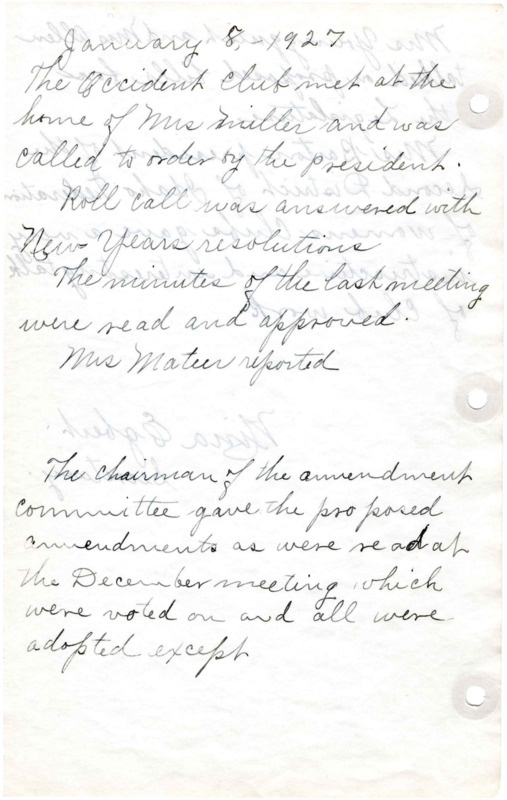 January 8 - 1927
The Occident Club met at the
home of Mrs Miller and was
called to order by the president.
Roll call was answered with
New Years resolutions
The minutes of the last meeting
were read and approved.
Mrs Mateer reported
The chairman of the amendment
committee gave the proposed
amendments as were read at
the December meeting which
were voted on and all were
adopted except